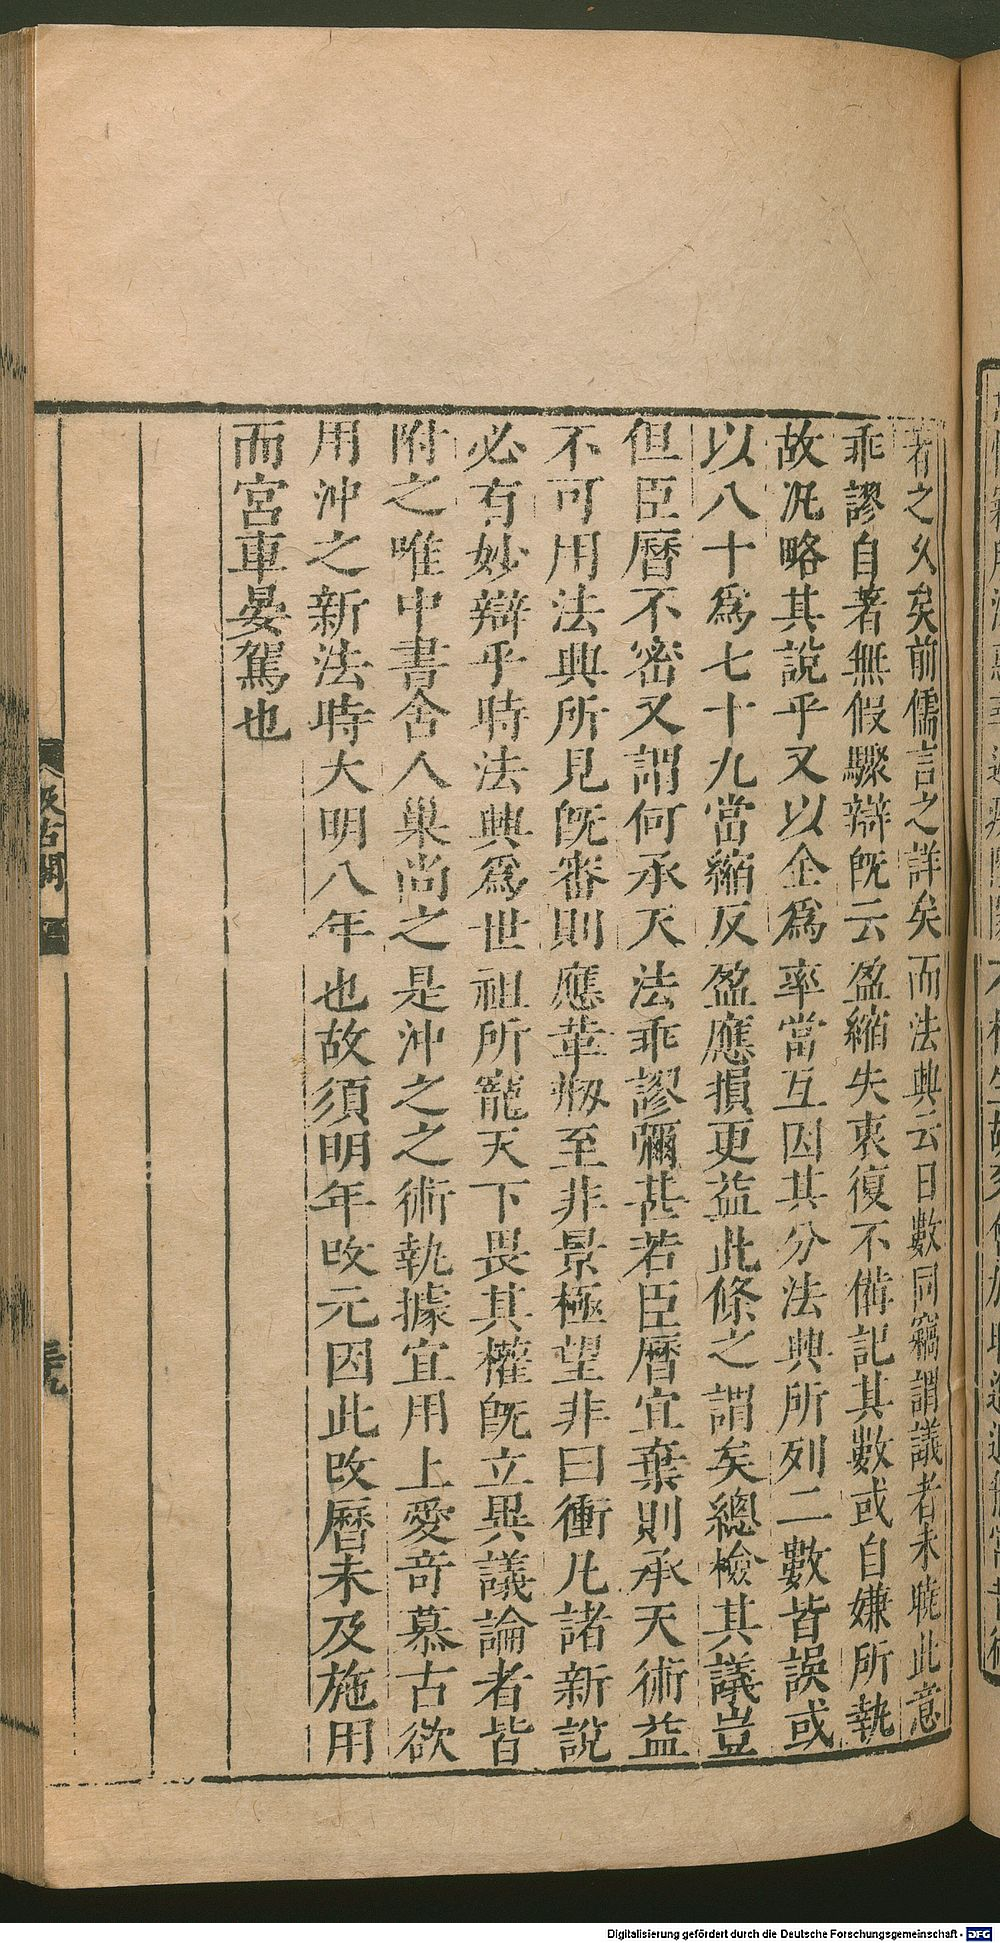 者之乆矣前儒言之詳矣而法興云日數同竊謂議者未曉此意
乖謬自著無假驟辯旣云盈縮失衷復不僃記其數或自嫌所執
故況略其說乎又以全爲率當互因其分法興所列二數皆誤或
以八十爲七十九當縮反盈應損更益此條之謂矣總檢其議豈
但臣曆不密又謂何承天法乖謬彌甚若臣曆宜棄則承天術益
不可用法興所見旣審則應革剏至非景極望非日衝凡諸新說
必有妙辯乎時法興爲世祖所寵天下畏其權旣立異議論者皆
附之唯中書舍人巢尚之是沖之之術執據宜用上愛奇慕古欲
用沖之新法時大明八年也故須明年攺元因此攺曆未及施用
而宮車晏駕也
汲古閣
Digitalisierung gefördert durch die Deutsche Forschungsgemeinschaft - DFG